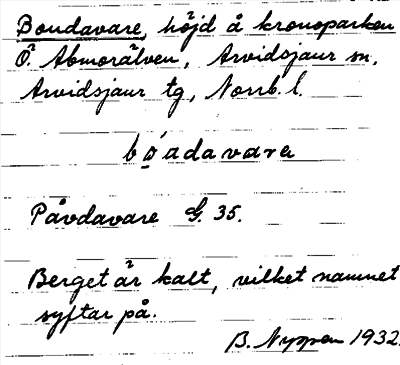 Boudavare, höjd å kronoparken
Ö. Abmorälven, Arvidsjaur sn,
Arvidsjaur tg, Norrb. l.
bo̱´adavarа
Påvdavare G. 35.
Berget är kalt, vilket namnet
syftar på.
B. Nyppen 1932.